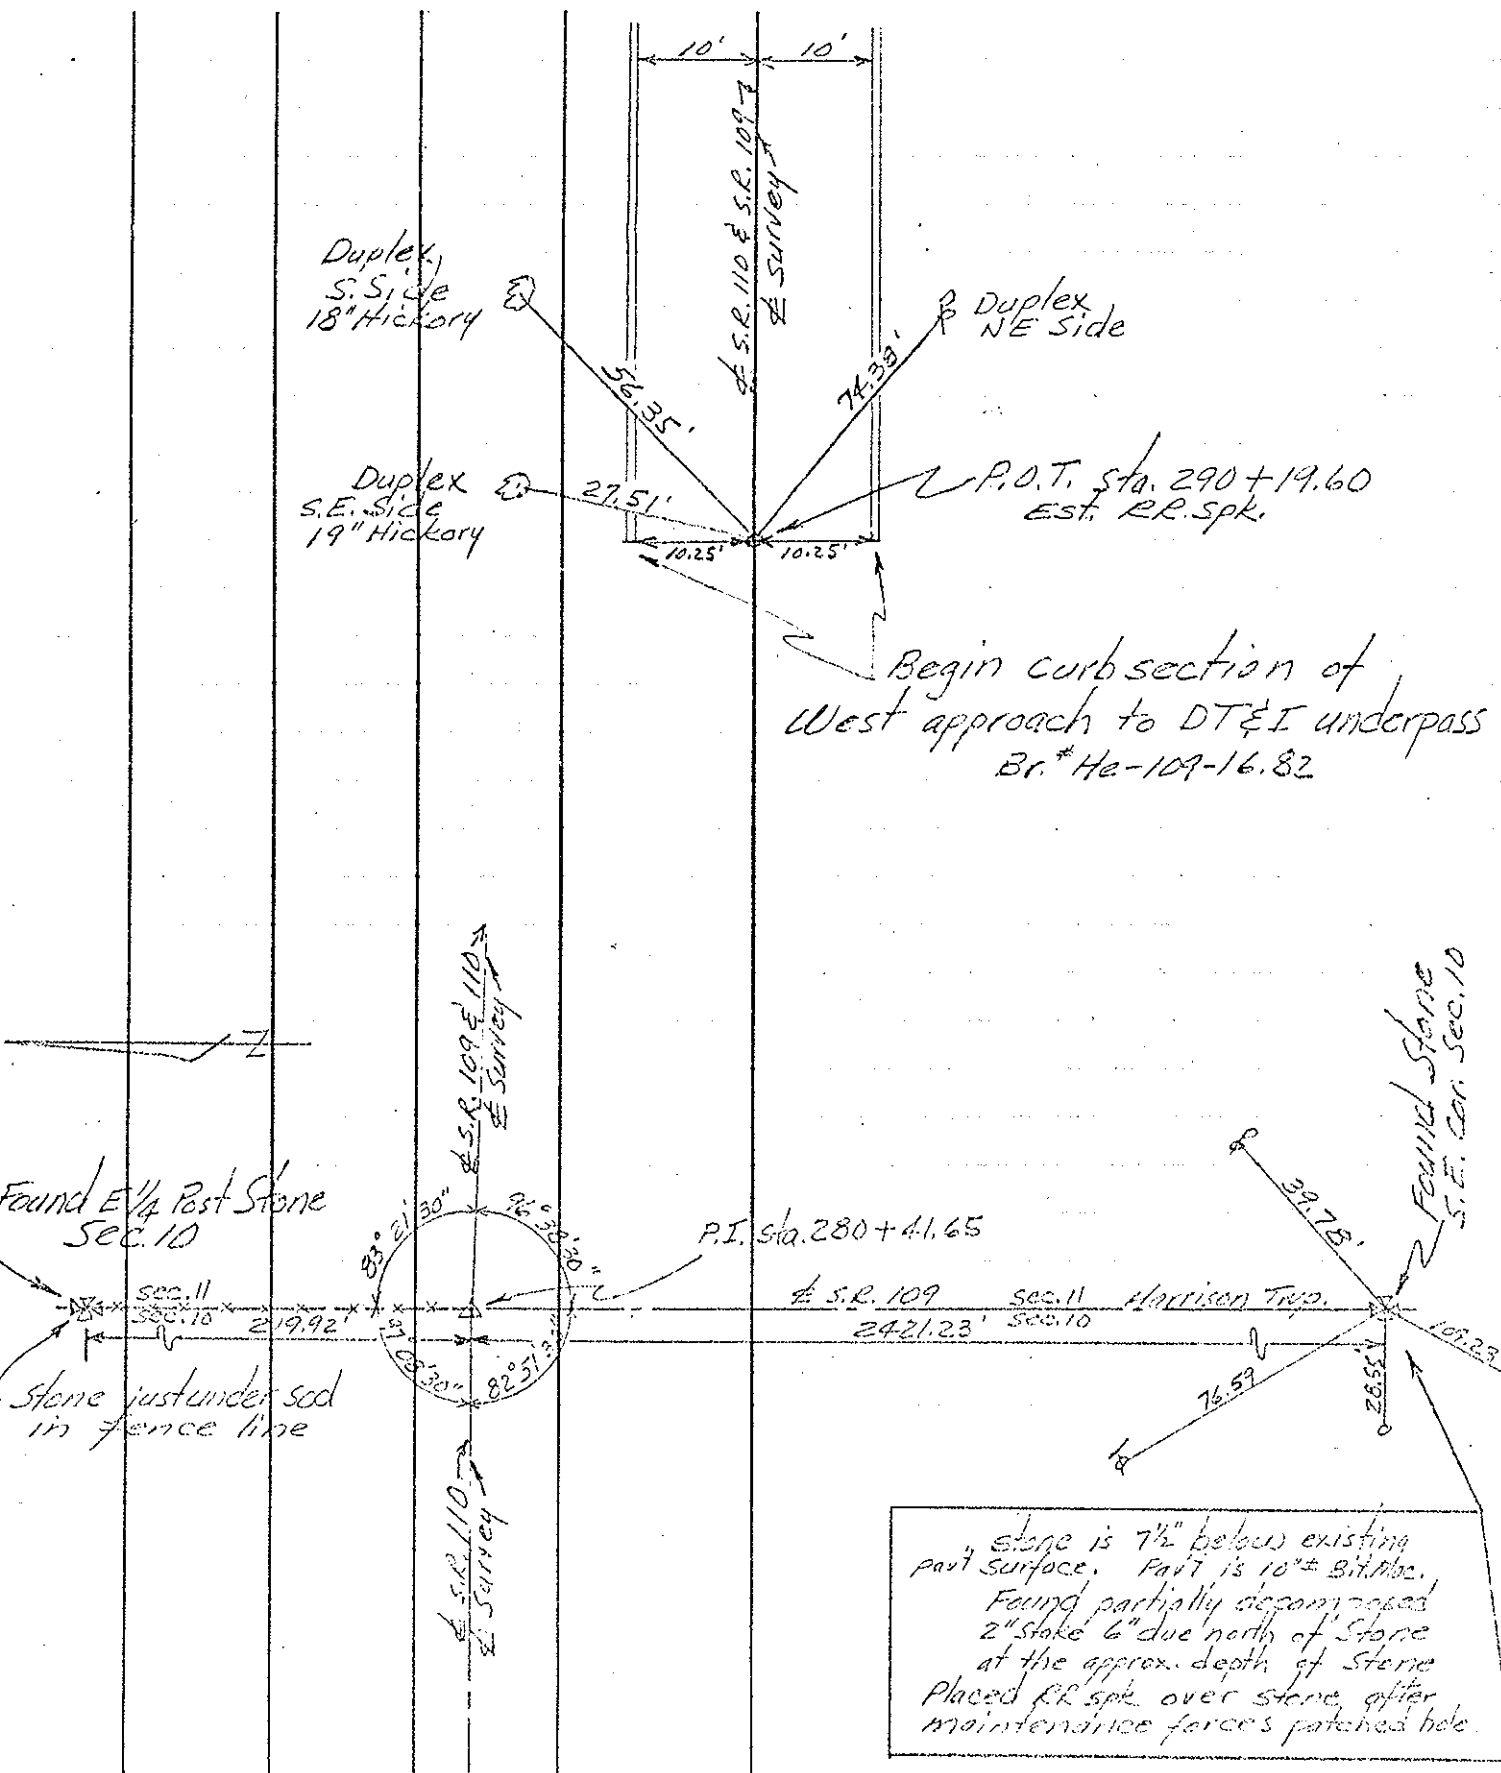 10' 10'
℄ S.R. 110 & S.R. 109
℄ Survey
Duplex
S. Side
18" Hickory
Duplex
NE Side
56.35'
74.38'
Duplex
S.E. Side
19" Hickory
27.51'
P.O.T. Sta. 290+19.60
Est. RR. Spk.
10.25' 10.25'
Begin curb section of
West approach to DT&I underpass
Br.# He-109-16.82
℄ S.R. 109 & 110
℄ Survey
N
Found Stone
S.E. Cor. Sec. 10
Found E¼ Post Stone
Sec. 10
83° 21' 30"
96° 38' 30"
P.I. Sta. 280+41.65
39.78'
Sec. 11
Sec. 10
219.92'
℄ S.R. 109
2421.23'
Sec. 11
Sec. 10
Harrison Twp.
109.23
97° 08' 30"
82° 51'
76.59
28.55'
Stone just under sod
in fence line
℄ S.R. 110
℄ Survey
Stone is 7½" below existing
pav't surface. Pav't is 10"± Bit. Mac.
Found partially decomposed
2" Stake 6" due north of Stone
at the approx. depth of Stone
Placed RR spk over stone after
maintenance forces patched hole.